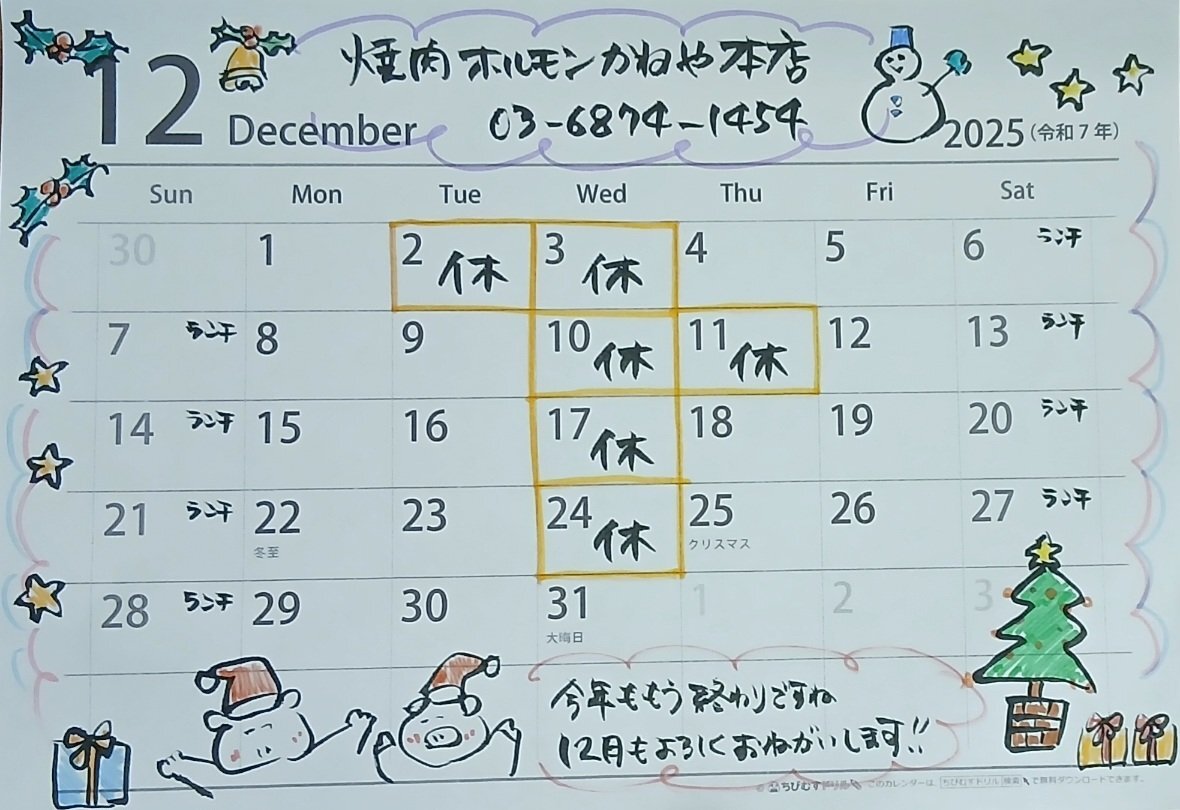 12
December
焼肉ホルモンかねや本店
03-6874-1454
2025(令和7年)
Sun Mon Tue Wed Thu Fri Sat
30 1 2 休 3 休 4 5 6 ランチ
7 ランチ 8 9 10 休 11 休 12 13 ランチ
14 ランチ 15 16 17 休 18 19 20 ランチ
21 ランチ 22 23 24 休 25 26 27 ランチ
冬至 クリスマス
28 ランチ 29 30 31 1 2 3
大晦日
今年ももう終わりですね
12月もよろしくおねがいします!!
© ちびむすドリル このカレンダーは、ちびむすドリル 検索 で無料ダウンロードできます。